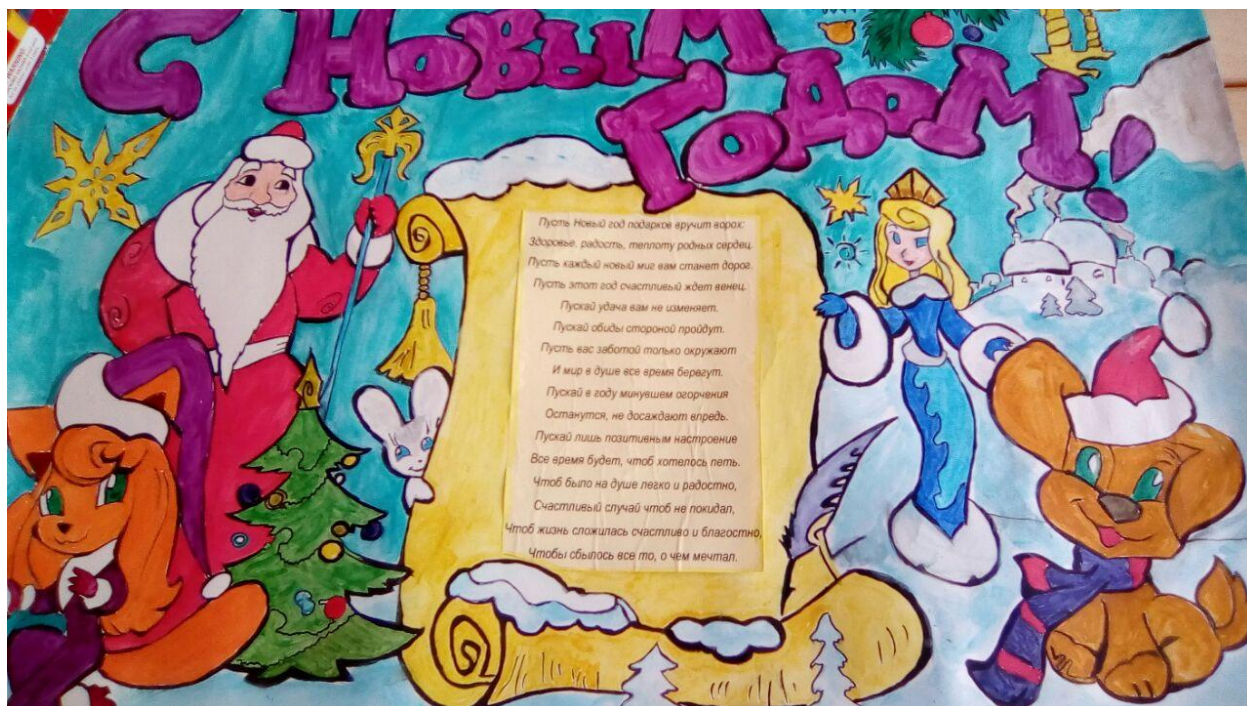 С Новым
Годом!
Пусть Новый год подарков вручит ворох:
Здоровье, радость, теплоту родных сердец.
Пусть каждый новый миг вам станет дорог.
Пусть этот год счастливый ждет венец.
Пускай удача вам не изменяет.
Пускай обиды стороной пройдут.
Пусть вас заботой только окружают
И мир в душе все время берегут.
Пускай в году минувшем огорчения
Останутся, не досаждают впредь.
Пускай лишь позитивным настроение
Все время будет, чтоб хотелось петь.
Чтоб было на душе легко и радостно,
Счастливый случай чтоб не покидал,
Чтоб жизнь сложилась счастливо и благостно,
Чтобы сбылось все то, о чем мечтал.